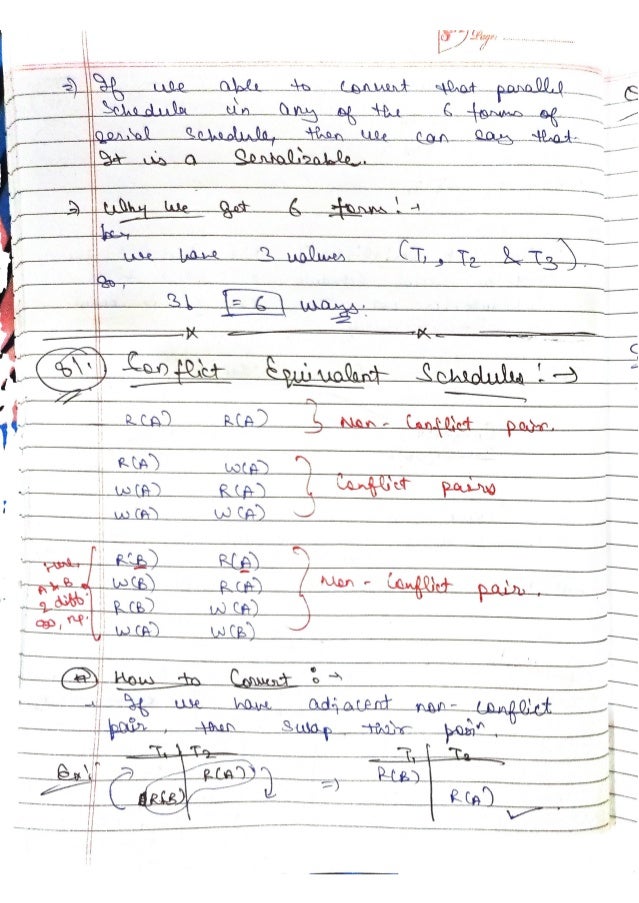 Page:
⇒ If we able to convert that parallel
Schedule in any of the 6 forms of
serial Schedule, then we can say that
It is a Serializable.
⇒ Why we got 6 form: →
bez
we have 3 values (T1, T2 & T3).
so,
3! = 6 ways.
81. Conflict Equivalent Schedules: →
R(A) R(A) } Non-Conflict pair.
R(A) W(A)
W(A) R(A) } Conflict pairs
W(A) W(A)
R(B) R(A)
A & B W(B) R(A) } Non-Conflict pair.
2 diff. R(B) W(A)
so, np. W(A) W(B)
How to Convert: →
If we have adjacent non-conflict
pair, then swap their pair.
T1 T2 T1 T2
Ex: R(A) ⇒ R(B)
R(B) R(A)